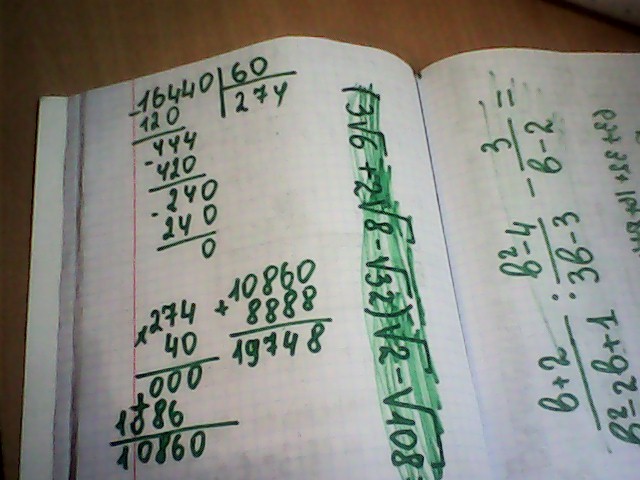 -16440 | 60
120 274
-444
420
-240
240
0
×274
40
+000
1086
10860
+10860
8888
19748
(3√6 + 2√8 - √32)√2 - √108
b+2 / b²-2b+1 : b²-4 / 3b-3 - 3 / b-2 =